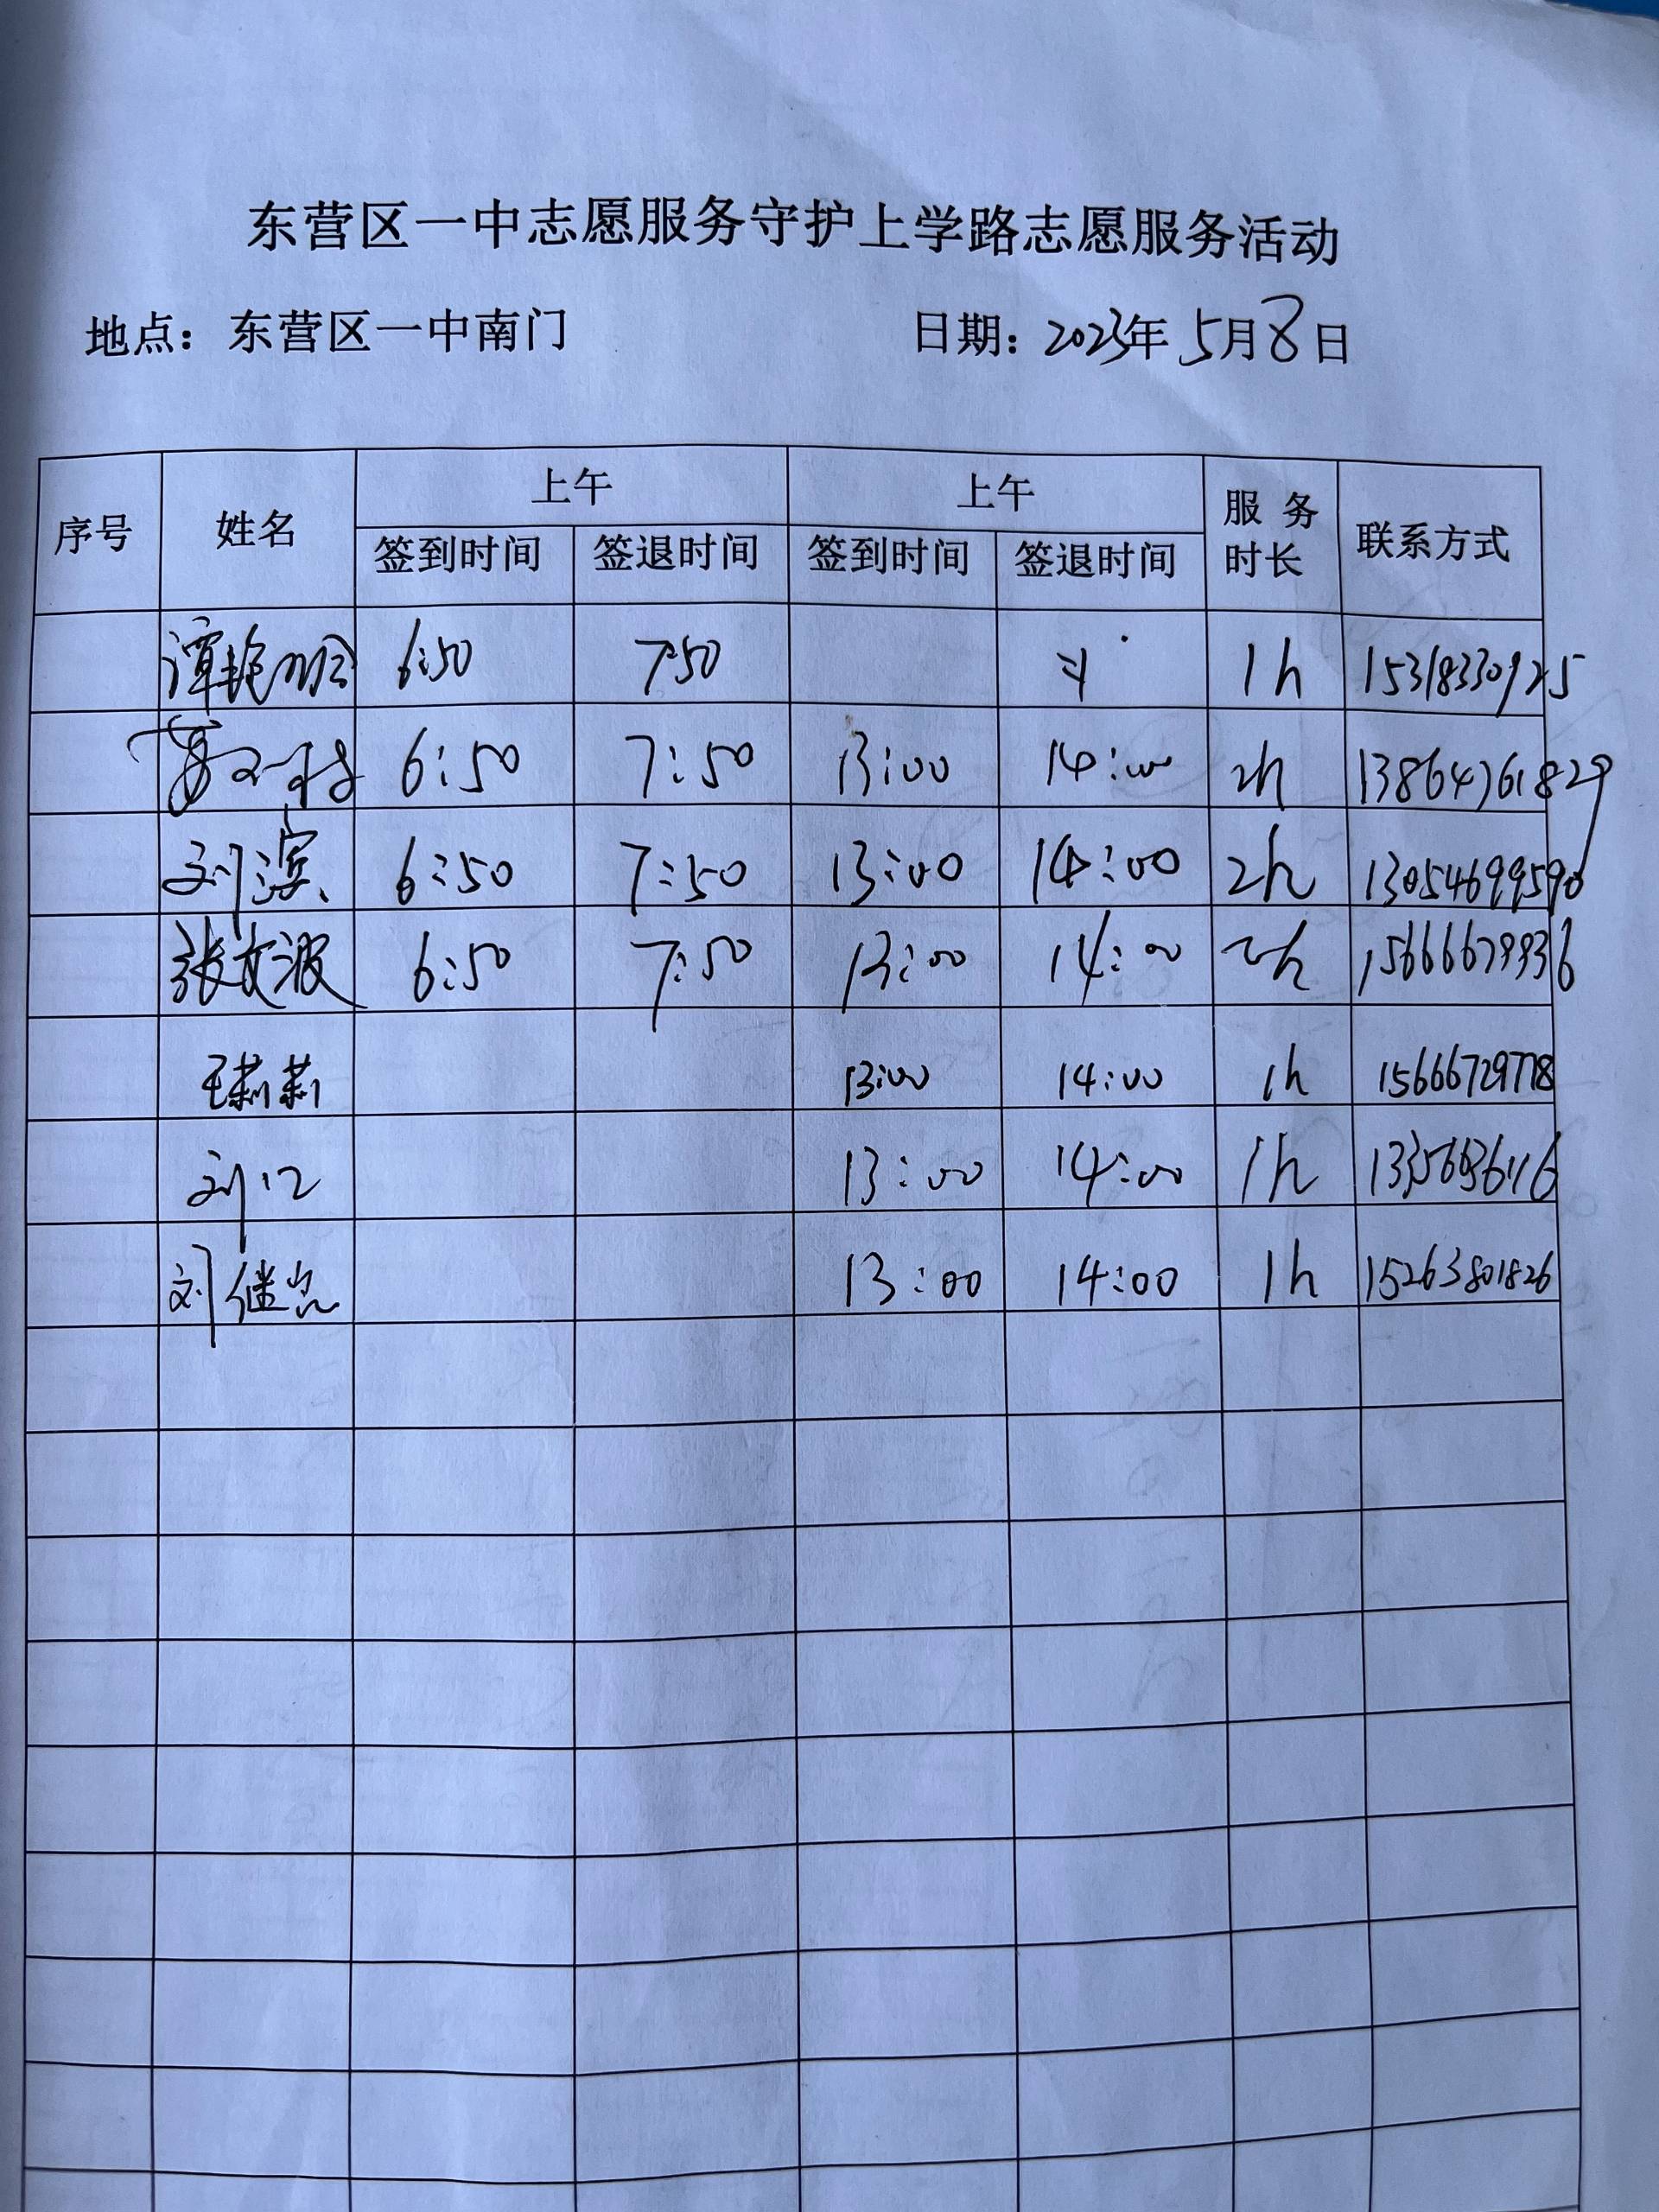 东营区一中志愿服务守护上学路志愿服务活动
地点：东营区一中南门 日期：2023年5月8日
序号 姓名 上午 上午 服务时长 联系方式
签到时间 签退时间 签到时间 签退时间
6:50 7:50 1h 15318330925
6:50 7:50 13:00 14:00 2h 13864761829
刘滨 6:50 7:50 13:00 14:00 2h 13054699590
张文波 6:50 7:50 13:00 14:00 2h
王莉莉 13:00 14:00 1h 15666729778
13:00 14:00 1h
刘继 13:00 14:00 1h 15263801826